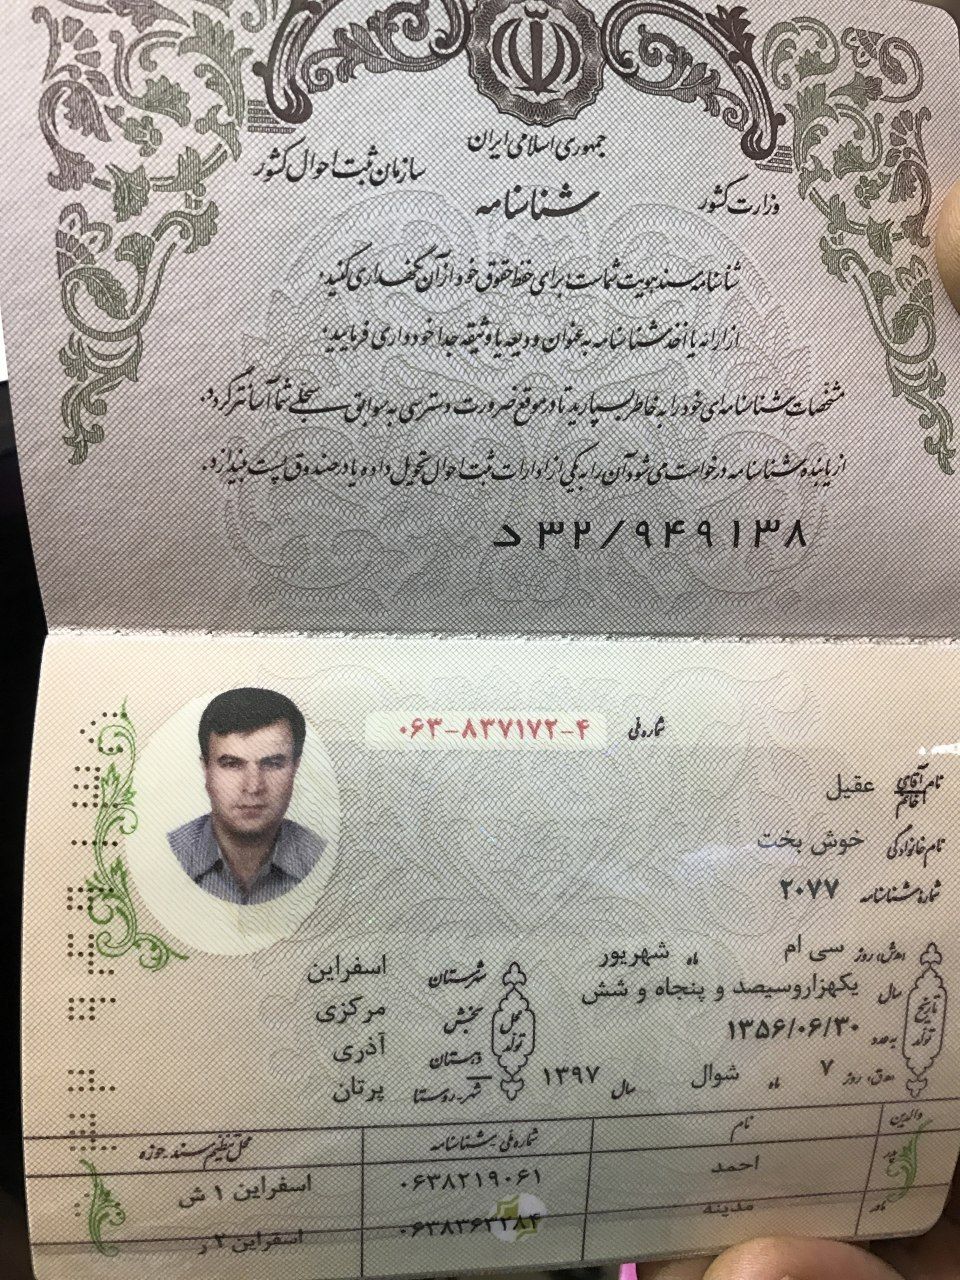 جمهوری اسلامی ایران
وزارت کشور
سازمان ثبت احوال کشور
شناسنامه
شناسنامه سند هویت شماست؛ برای حفظ حقوق خود از آن نگهداری کنید.
از ارائه یا اخذ شناسنامه به عنوان ودیعه یا وثیقه جداً خودداری فرمایید؛
مشخصات شناسنامه‌ای خود را به خاطر بسپارید تا در موقع ضرورت دسترسی به سوابق سجلی شما آسانتر گردد.
از یابنده شناسنامه درخواست می‌شود آن را به یکی از ادارات ثبت احوال تحویل داده یا در صندوق پست بیندازد.
د۳۲/۹۴۹۱۳۸
شماره ملی ۰۶۳-۸۳۷۱۷۲-۴
نام آقای / خانم عقیل
نام خانوادگی خوش بخت
شماره شناسنامه ۲۰۷۷
تاریخ تولد
ه‍.ش، روز سی ام ماه شهریور
سال یکهزاروسیصد و پنجاه و شش
به عدد ۱۳۵۶/۰۶/۳۰
ه‍.ق، روز ۷ ماه شوال سال ۱۳۹۷
محل تولد
شهرستان اسفراین
بخش مرکزی
دهستان آذری
شهر-روستا پرتان
والدین نام شماره ملی-شناسنامه محل تنظیم سند-حوزه
پدر احمد ۰۶۳۸۲۱۹۰۶۱ اسفراین ۱ ش
مادر مدینه ۰۶۳۸۳۶۳۲۸۴ اسفراین ۲ ر